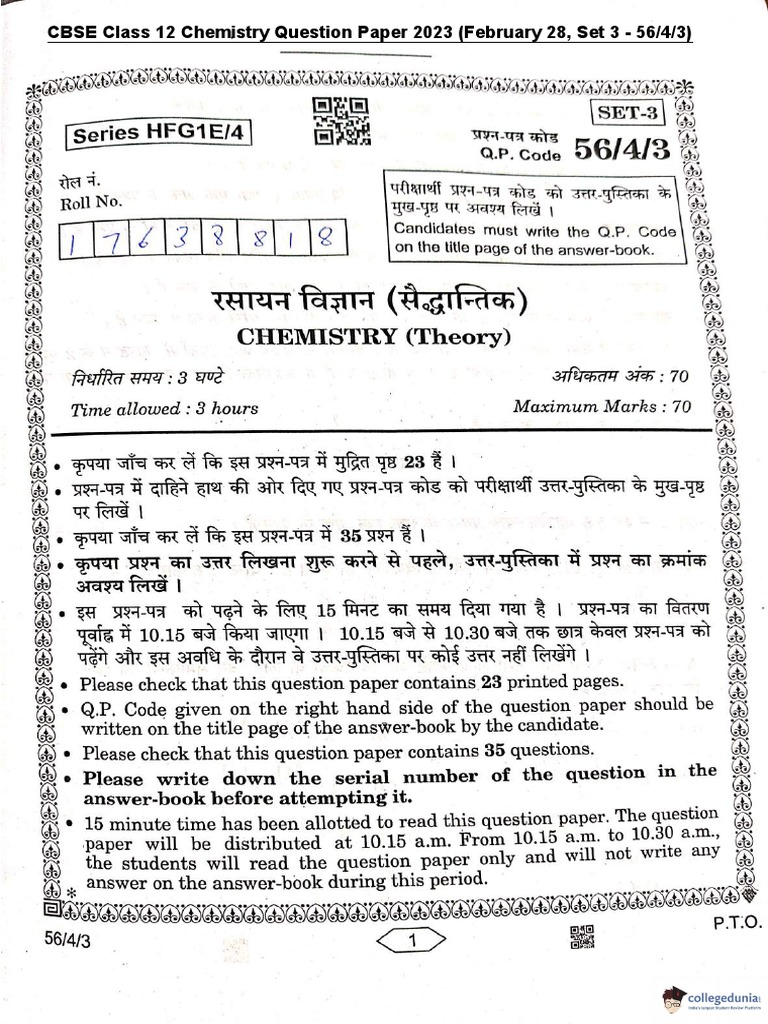 CBSE Class 12 Chemistry Question Paper 2023 (February 28, Set 3 - 56/4/3)
SET-3
Series HFG1E/4
प्रश्न-पत्र कोड
Q.P. Code 56/4/3
रोल नं.
Roll No.
1 7 6 3 8 8 1 8
परीक्षार्थी प्रश्न-पत्र कोड को उत्तर-पुस्तिका के
मुख-पृष्ठ पर अवश्य लिखें ।
Candidates must write the Q.P. Code
on the title page of the answer-book.
रसायन विज्ञान (सैद्धान्तिक)
CHEMISTRY (Theory)
निर्धारित समय : 3 घण्टे
अधिकतम अंक : 70
Time allowed : 3 hours
Maximum Marks : 70
• कृपया जाँच कर लें कि इस प्रश्न-पत्र में मुद्रित पृष्ठ 23 हैं ।
• प्रश्न-पत्र में दाहिने हाथ की ओर दिए गए प्रश्न-पत्र कोड को परीक्षार्थी उत्तर-पुस्तिका के मुख-पृष्ठ
पर लिखें ।
• कृपया जाँच कर लें कि इस प्रश्न-पत्र में 35 प्रश्न हैं ।
• कृपया प्रश्न का उत्तर लिखना शुरू करने से पहले, उत्तर-पुस्तिका में प्रश्न का क्रमांक
अवश्य लिखें ।
• इस प्रश्न-पत्र को पढ़ने के लिए 15 मिनट का समय दिया गया है । प्रश्न-पत्र का वितरण
पूर्वाह्न में 10.15 बजे किया जाएगा । 10.15 बजे से 10.30 बजे तक छात्र केवल प्रश्न-पत्र को
पढ़ेंगे और इस अवधि के दौरान वे उत्तर-पुस्तिका पर कोई उत्तर नहीं लिखेंगे ।
• Please check that this question paper contains 23 printed pages.
• Q.P. Code given on the right hand side of the question paper should be
written on the title page of the answer-book by the candidate.
• Please check that this question paper contains 35 questions.
• Please write down the serial number of the question in the
answer-book before attempting it.
• 15 minute time has been allotted to read this question paper. The question
paper will be distributed at 10.15 a.m. From 10.15 a.m. to 10.30 a.m.,
the students will read the question paper only and will not write any
answer on the answer-book during this period.
*
56/4/3
1
P.T.O.
collegedunia
India's largest Student Review Platform